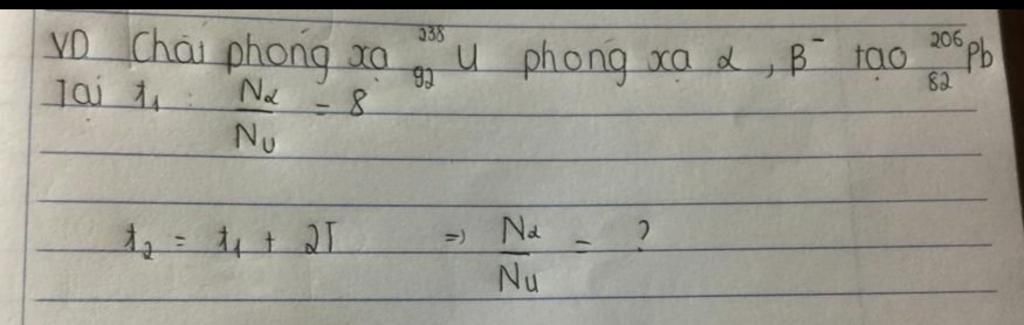 VD Chất phóng xạ ²³⁸₉₂U phóng xạ α, β⁻ tạo ²⁰⁶₈₂Pb
Tại t₁: Nα/Nu = 8
t₂ = t₁ + 2T => Nα/Nu = ?